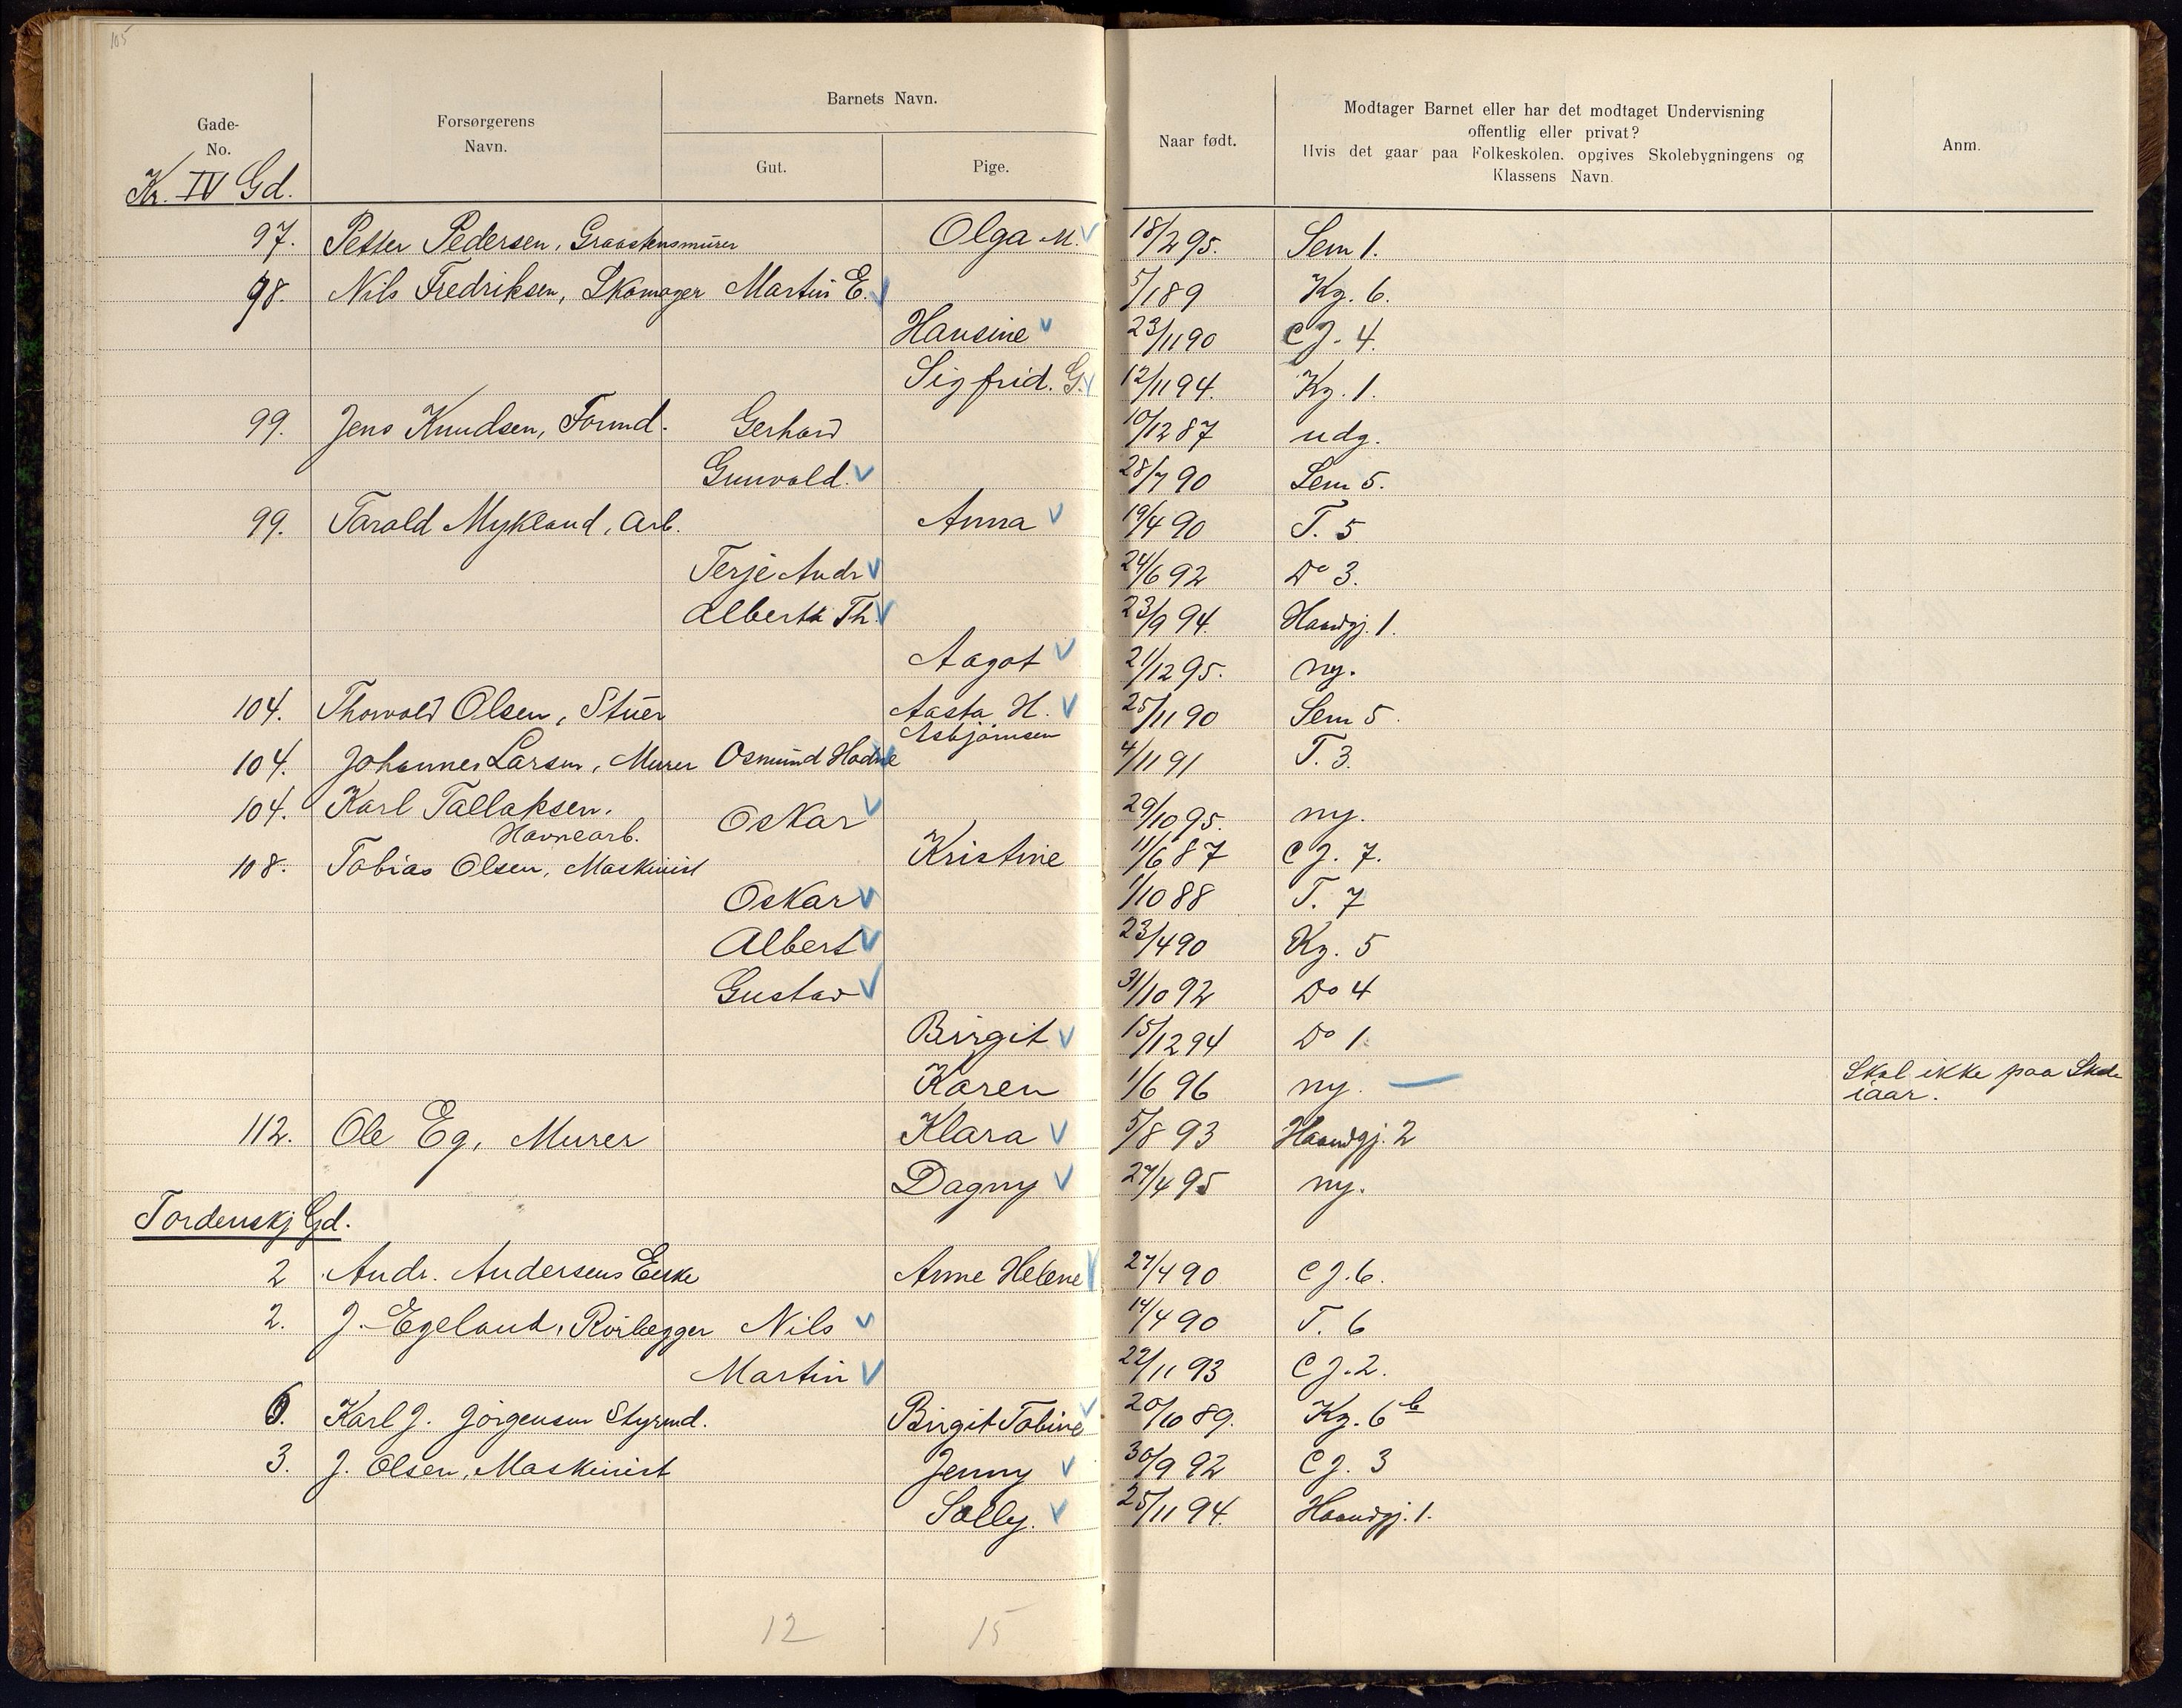 105
Barnets Navn.
Gade-
No.
Forsørgerens
Navn.
Gut.
Pige.
Naar født.
Modtager Barnet eller har det modtaget Undervisning
offentlig eller privat?
Hvis det gaar paa Folkeskolen. opgives Skolebygningens og
Klassens Navn.
Anm.
Kr. IV Gd.
97. Petter Pedersen, Graastensmurer Olga M. 18/2 95. Sem 1.
98. Nils Fredriksen, Skomager Martin E. 5/1 89 Kg. 6.
Hansine 23/11 90 CJ. 4.
Sigfrid. G. 12/11 94. Kg. 1.
99. Jens Knudsen, Formd. Gerhard 10/12 87 udg.
Gunvald. 28/7 90 Sem 5.
99. Tarald Mykland, Arb. Anna 19/4 90 T. 5
Terje Andr 24/6 92 Do 3.
Albert Th. 23/9 94. Haandgj. 1.
Aagot 21/12 95. ny.
104. Thorvald Olsen, Stuer Aasta H. 25/11 90 Sem 5.
Asbjørnsen
104. Johannes Larsen, Murer Osmund Hodne 4/11 91 T. 3.
104. Karl Tallaksen, Oskar 29/10 95. ny.
Havnearb.
108. Tobias Olsen, Maskinist Kristine 11/6 87 CJ. 7.
Oskar 1/10 88 T. 7
Albert 23/4 90 Kg. 5
Gustav 31/10 92 Do 4
Birgit 15/12 94 Do 1.
Karen 1/6 96 ny. — Skal ikke paa Skole
iaar.
112. Ole Eg, Murer Klara 5/8 93 Haandgj. 2
Dagny 27/4 95 ny.
Tordenskj Gd.
2 Andr. Andersens Enke Anne Helene 27/4 90 CJ. 6.
2. J. Egeland, Rørlægger Nils 14/4 90 T. 6
Martin 22/11 93 CJ. 2.
6. Karl J. Jørgensen Styrmd. Birgit Tobine 20/10 89. Kg. 6 b
3. J. Olsen, Maskinist Jenny 30/9 92 CJ. 3
Solly. 25/11 94. Haandgj. 1.
12 15